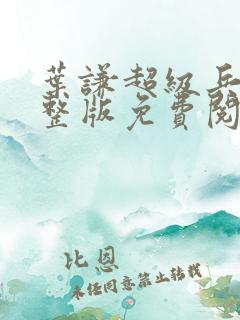 葉謙超級兵
整版免費閱
比恩
未经同意禁止转载